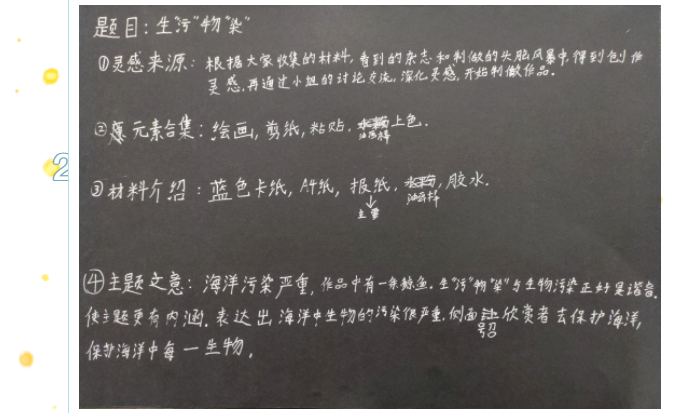 题目:生"污"物"染"
①灵感来源:根据大家收集的材料,看到的杂志和制做的头脑风暴中,得到创作
灵感,再通过小组的讨论交流,深化灵感,开始制做作品。
②元素合集:绘画,剪纸,粘贴,油画棒上色.
③材料介绍:蓝色卡纸,A4纸,报纸,油画棒,胶水.
主要
④主题文意:海洋污染严重,作品中有一条鲸鱼.生"污"物"染"与生物污染正好是谐音,
使主题更有内涵.表达出海洋中生物的污染很严重.侧面号召欣赏者去保护海洋,
保护海洋中每一生物.
2